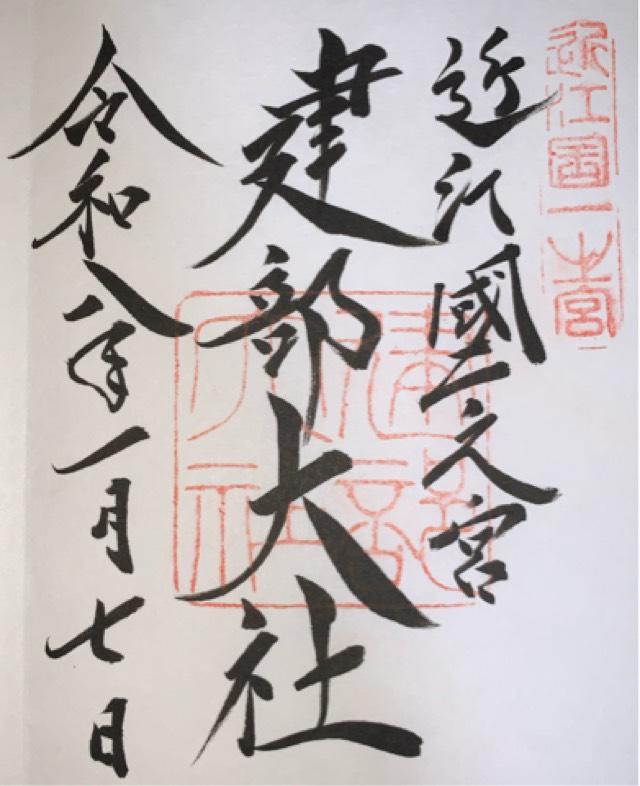 近江國一之宮
近江國一之宮
建部大社
建部大社
令和八年一月七日